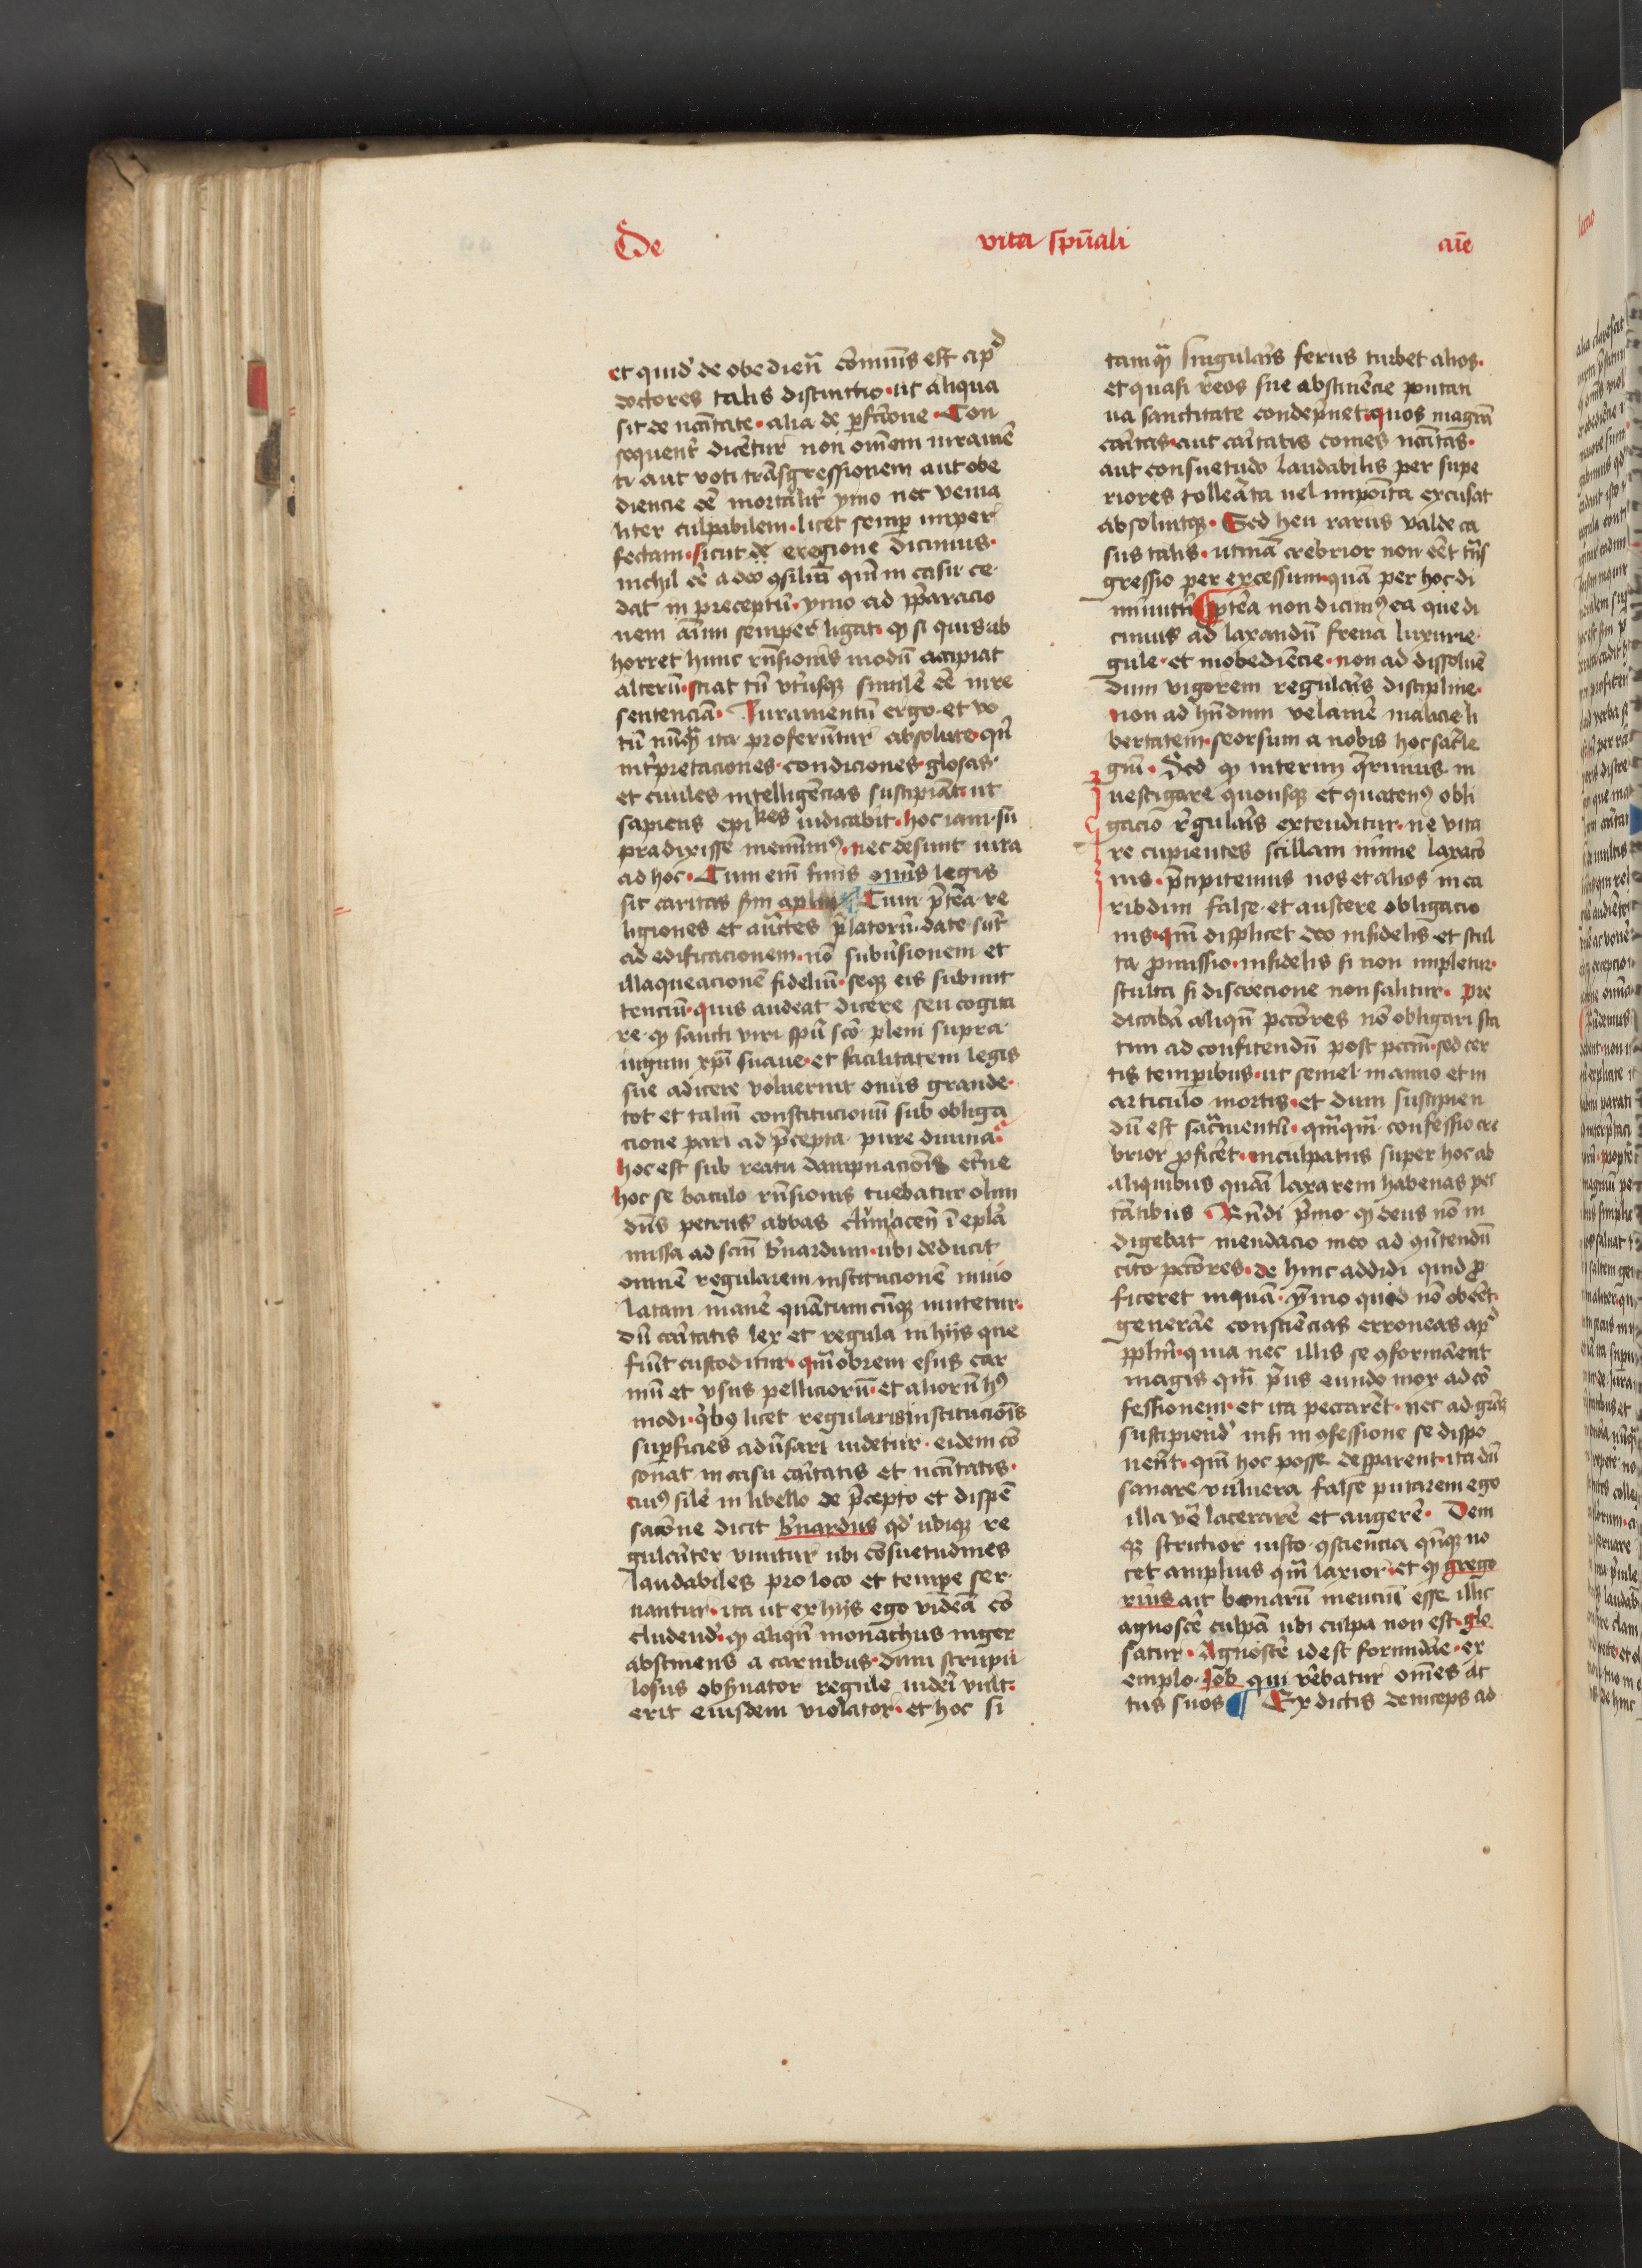 De vita sp̄uali aīe
et quid' de obedien̄ cōmunis est ap̄d
doctores talis distinctio · ut aliqua
sit de nc̄itate · alia de p̄fcīone · Con
sequent̄ dicetur non om̄em iuramē
ti aut voti trāsgressionem aut obe
diencie eē mortalit̄ ymo nec venia
liter culpabilem · licet semp̄ imper
fectam · sicut de eregione dicimus ·
nichil eē adeo ꝯsiliū qin̄ in casu ce
dat in preceptū · ymo ad p̄paracio
nem aīmi semper ligat · ꝙ si quis ab
horret hunc rn̄sionis modū accipiat
alterū · sciat tn̄ vtrūsqꝫ similē eē in re
sentenciā · Iuramentū ergo · et vo
tū nūqꝫ ita proferūntur absolute · qn̄
int̄pretaciones · condiciones · glosas ·
et ciuiles intelligēcias suscipiāt · ut
sapiens epikes iudicabit · hoc iam su
pra dixisse meminimꝰ · nec desunt iura
ad hoc · Cum em̄ finis om̄is legis
sit caritas scd̄m ap̄lm Cum p̄terea re
ligiones et auctes p̄latorū date sūt
ad edificacionem · nō subūsionem et
illaqueacionē fideliū · seqꝫ eis submit
tenciū · quis audeat dicere seu cogita
re · ꝙ sancti viri sp̄u scō pleni supra
iugum xp̄i suaue · et facilitatem legis
sue adicere voluerūt onus grande ·
tot et taliū constitucionū sub obliga
cione pari ad p̄cepta pure diuina ·
hoc est sub reatu dampnacionis et̄ne
hoc se baculo rn̄sionis tuebatur olim
dn̄s petrus abbas cluniacen̄ ī ep̄la
missa ad scm̄ b̄nardum · ubi deducit
omnē regularem institucionē inuio
latam manē quātumcūqꝫ mutetur ·
dū caritatis lex et regula in hijs que
fiūt custoditur · qm̄obrem esus car
niū et vsus pelliciorū · et aliorū hꝰ
modi · qͥbꝫ licet regularis institucionis
sup̄ficies adūsari videtur · eidem cō
sonat in casu caritatis et nc̄itatis ·
cuiꝰ silē in libello de p̄cepto et dispē
sacōne dicit b̄nardus qd' ubiqꝫ re
gulariter viuitur ubi cōsuetudines
laudabiles pro loco et tempe ser
uantur · ita ut ex hijs ego videā cō
cludend' · ꝙ aliqn̄ monachus niger
abstinens a carnibus · dum scrupu
losus obs̄uator regule videri vult ·
erit eiusdem violator · et hoc si
tamqꝫ singularis ferus turbet alios ·
et quasi reos sue abstinēcie putati
ua sanctitate condēpnet · quos magna
caritas · aut caritatis comes nc̄itas ·
aut consuetudo laudabilis per supe
riores tollerata uel imposita excusat
absoluitqꝫ · Sed heu rarus valde ca
sus talis · utinā crebrior non eēt trās
gressio per excessum · quā per hoc di
minutū P̄terea non dicimꝰ ea que di
cimus ad laxandū frena luxurie ·
gule · et inobediēcie · non ad dissoluē
dum vigorem regularis discipline ·
non ad hn̄dum velamē malicie li
bertatem · seorsum a nobis hoc sacrile
giū · Sed ꝙ interim q̄rimus in
uestigare quousqꝫ et quatenꝰ obli
gacio regularis extenditur · ne vita
re cupientes scillam nimie laxacō
nis · p̄cipitemus nos et alios in ca
ribdim false · et austere obligacio
nis · qm̄ displicet deo infidelis et stul
ta promissio · infidelis si non impletur ·
stulta si discrecione non salitur · Pre
dicabā aliqn̄ pctōres nō obligari sta
tim ad confitendū post pccm̄ · sed cer
tis temporibus · ut semel in anno et in
articulo mortis · et dum suscipien
dū est sacramentū · qm̄qm̄ confessio cre
brior p̄ficeret · inculpatus super hoc ab
aliquibus quasi laxarem habenas pec
cantibus · Rn̄di p̄mo · ꝙ deus nō in
digebat mendacio meo ad ꝯūtendū
cito pctōres · de hinc addidi quid p̄
ficeret inquā · ymo quid nō obēēt ·
generare consciēcias erroneas ap̄d
pp̄lm · quia nec illis se ꝯformarent
magis qm̄ p̄us eundo mox ad cō
fessionem · et ita peccarēt · nec ad grās
suscipiend' nisi in ꝯfessione se dispo
nerēt · qm̄ hoc posse desparent · ita dū
sanare vulnera false putarem ego
illa vē lacerarē et augerē · Dem
qꝫ strictior iusto ꝯsciencia qn̄qꝫ no
cet amplius qm̄ laxior · et ꝙ grego
rius ait bonarū menciū esse illic
agnoscē culpā ubi culpa non est · glo
satur · Agnoscē id est formidare · ex
emplo · Iob qui verebatur om̄es ac
tus suos ¶ Ex dictis deinceps ad